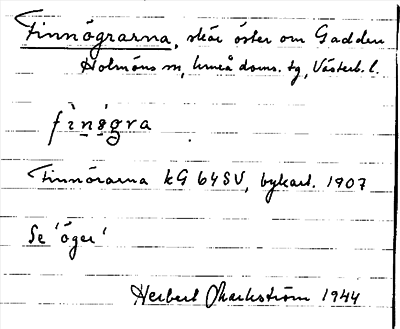 Finnögrarna, skär öster om Gadden
Holmöns sn, Umeå doms. tg, Västerb. l.
fìnǿgra
Finnörarna kG 64SV, bykart. 1907
Se 'öger'
Herbert Markström 1944